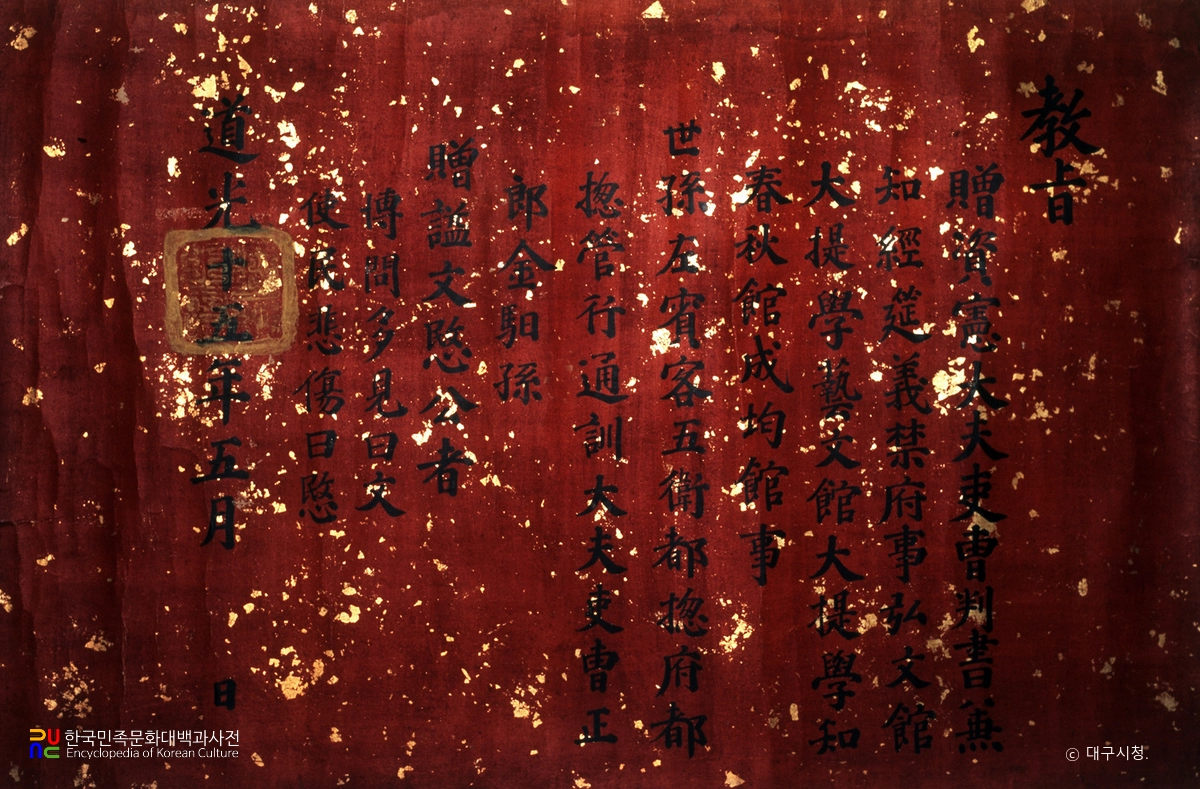 教旨
贈資憲大夫吏曹判書兼
知經筵義禁府事弘文館
大提學藝文館大提學知
春秋館成均館事
世孫左賓客五衛都摠府都
摠管行通訓大夫吏曹正
郎金馹孫
贈諡文愍公者
博問多見曰文
使民悲傷曰愍
道光十五年五月 日
한국민족문화대백과사전
Encyclopedia of Korean Culture
ⓒ 대구시청.